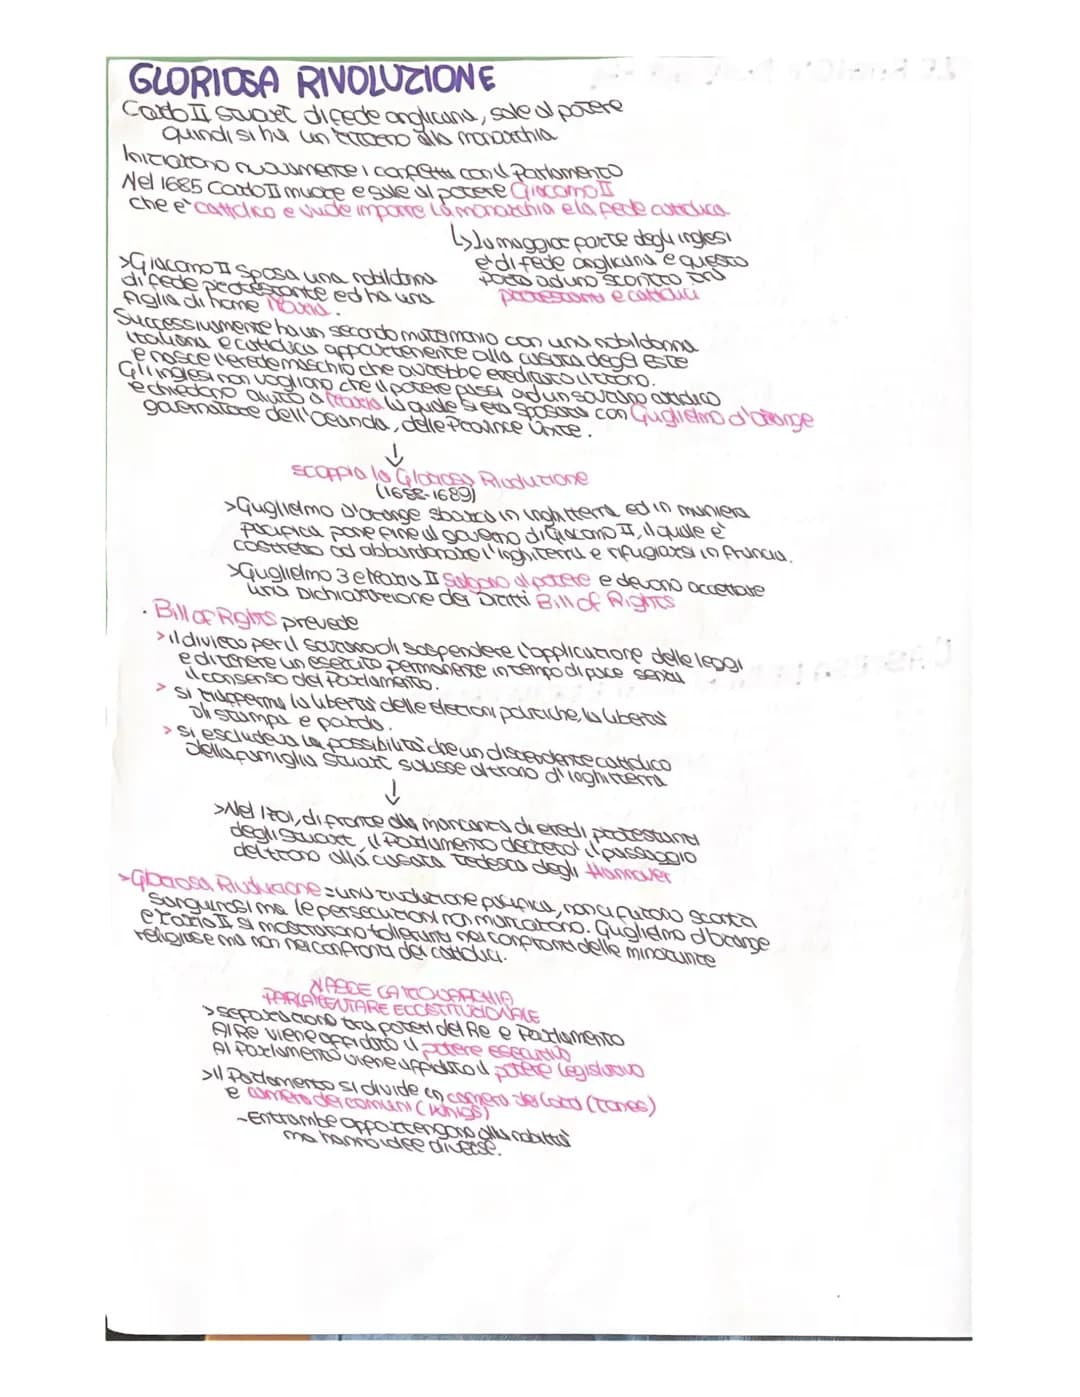 GLORIOSA RIVOLUZIONE
Carlo II Stuart di fede anglicana, sale al potere
quindi si ha un ritorno alla monarchia
Iniziarono nuovamente i conflitti con il Parlamento
Nel 1685 Carlo II muore e sale al potere Giacomo II
che e' cattolico e vuole imporre la monarchia e la fede cattolica
↳>la maggior parte degli inglesi
e' di fede anglicana e questo
porta ad uno scontro tra
protestanti e cattolici
>Giacomo II sposa una nobildonna
di fede protestante ed ha una
figlia di nome Maria.
Successivamente ha un secondo matrimonio con una nobildonna
italiana e cattolica appartenente alla casata degli Este
e nasce l'erede maschio che avrebbe ereditato il trono.
Gli inglesi non vogliono che il potere passi ad un sovrano cattolico
e chiedono aiuto a Maria la quale si era sposata con Guglielmo d'Orange
governatore dell'Olanda, delle Province Unite.
↓
scoppia la Gloriosa Rivoluzione
(1688-1689)
>Guglielmo D'orange sbarca in inghilterra ed in maniera
pacifica pone fine al governo di Giacomo II, il quale e'
costretto ad abbandonare l'inghilterra e rifugiarsi in Francia.
>Guglielmo 3 e Maria II salgono al potere e devono accettare
una Dichiarazione dei Diritti Bill of Rights
. Bill of Rights prevede
>il divieto per il sovrano di sospendere l'applicazione delle leggi
e di tenere un esercito permanente in tempo di pace senza
il consenso del Parlamento.
> si riafferma la liberta' delle elezioni politiche, la liberta'
di stampa e parola.
> si escludeva la possibilita' che un discendente cattolico
della famiglia Stuart salisse al trono d'inghilterra
↓
>Nel 1701, di fronte alla mancanza di eredi protestanti
degli Stuart, il Parlamento decreto' il passaggio
del trono alla casata tedesca degli Hannover
>Gloriosa Rivoluzione = una rivoluzione pacifica, non ci furono scontri
sanguinosi ma le persecuzioni non mancarono. Guglielmo d'orange
e Maria II si mostrarono tolleranti nei confronti delle minoranze
religiose ma non nei confronti dei cattolici.
NASCE LA MONARCHIA
PARLAMENTARE E COSTITUZIONALE
>separazione tra poteri del Re e Parlamento
Al Re viene affidato il potere esecutivo
Al Parlamento viene affidato il potere legislativo
>Il Parlamento si divide in camera dei Lord (Tories)
e camera dei comuni (Whigs)
-Entrambe appartengono alla nobilta'
ma hanno idee diverse.